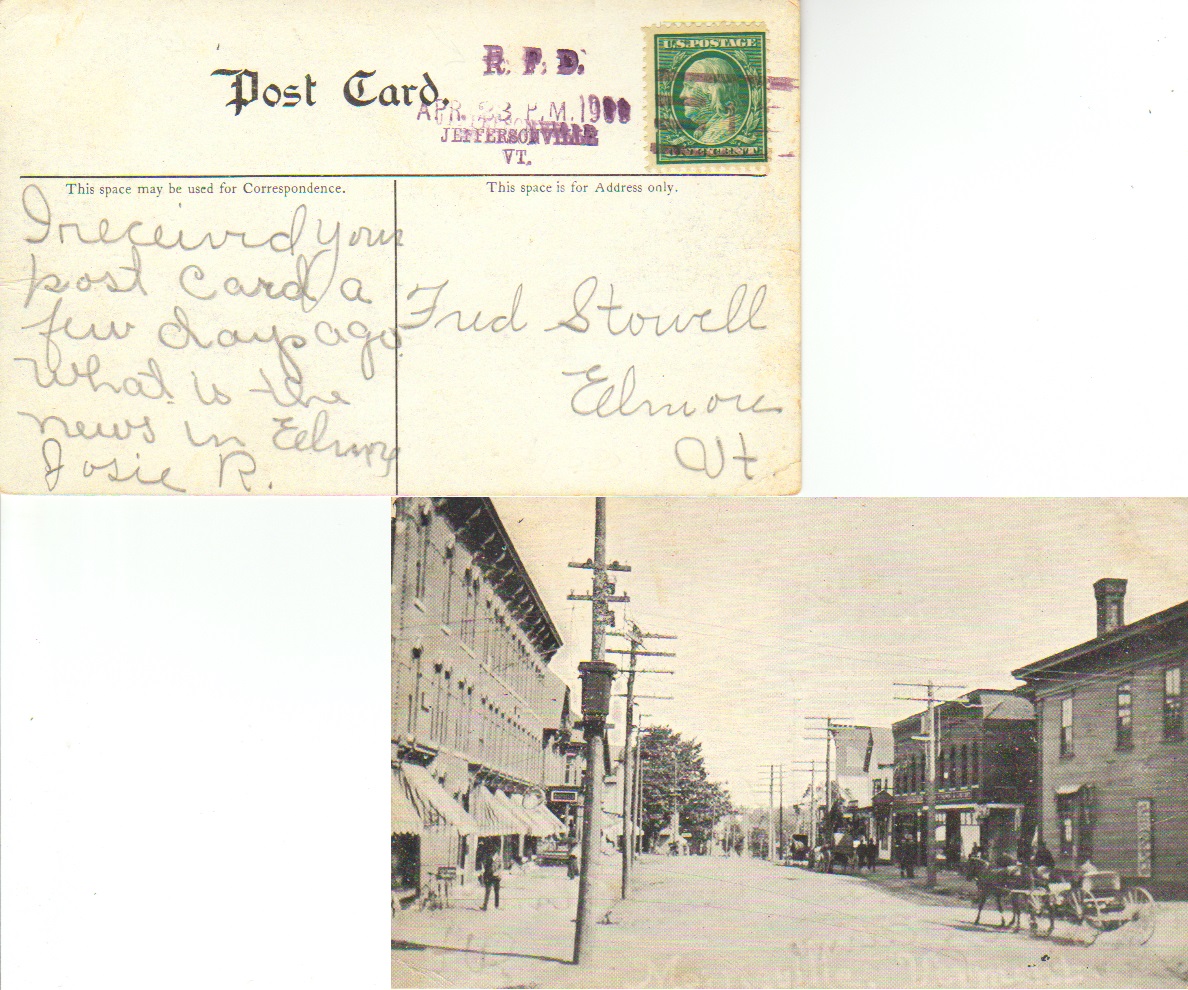 Post Card.
R. F. D.
APR. 23 P.M. 19
JEFFERSONVILLE
VT.
U.S. POSTAGE
This space may be used for Correspondence.
This space is for Address only.
I received your
post card a
few days ago.
What is the
news in Eelmore
Josie R.
Fred Stowell
Eelmore
Vt